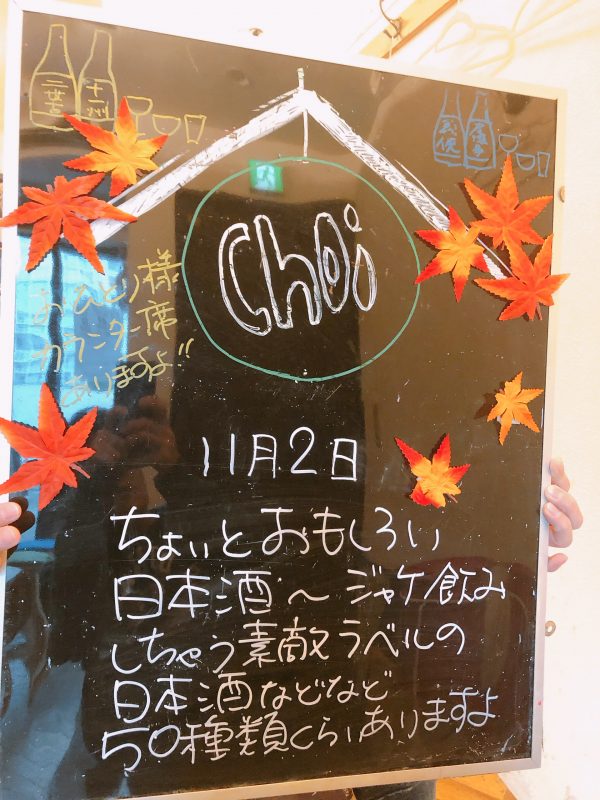 Choi
おひとり様
カウンター席
ありますよ!!
11月2日
ちょいとおもしろい
日本酒〜ジャケ飲み
しちゃう素敵ラベルの
日本酒などなど
50種類くらいありますよ